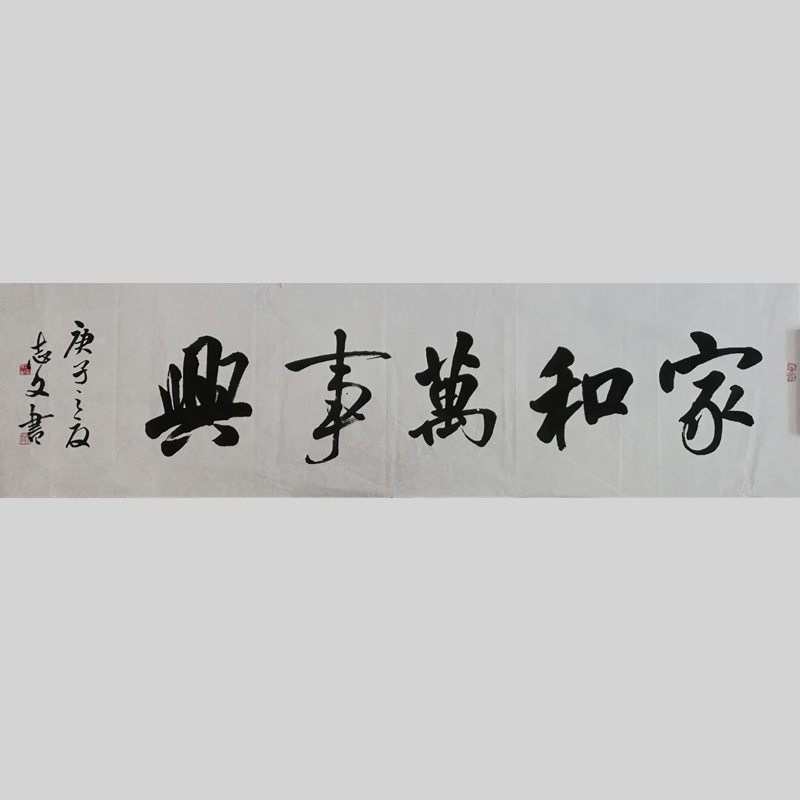 家和萬事興
庚子之夏
志文書